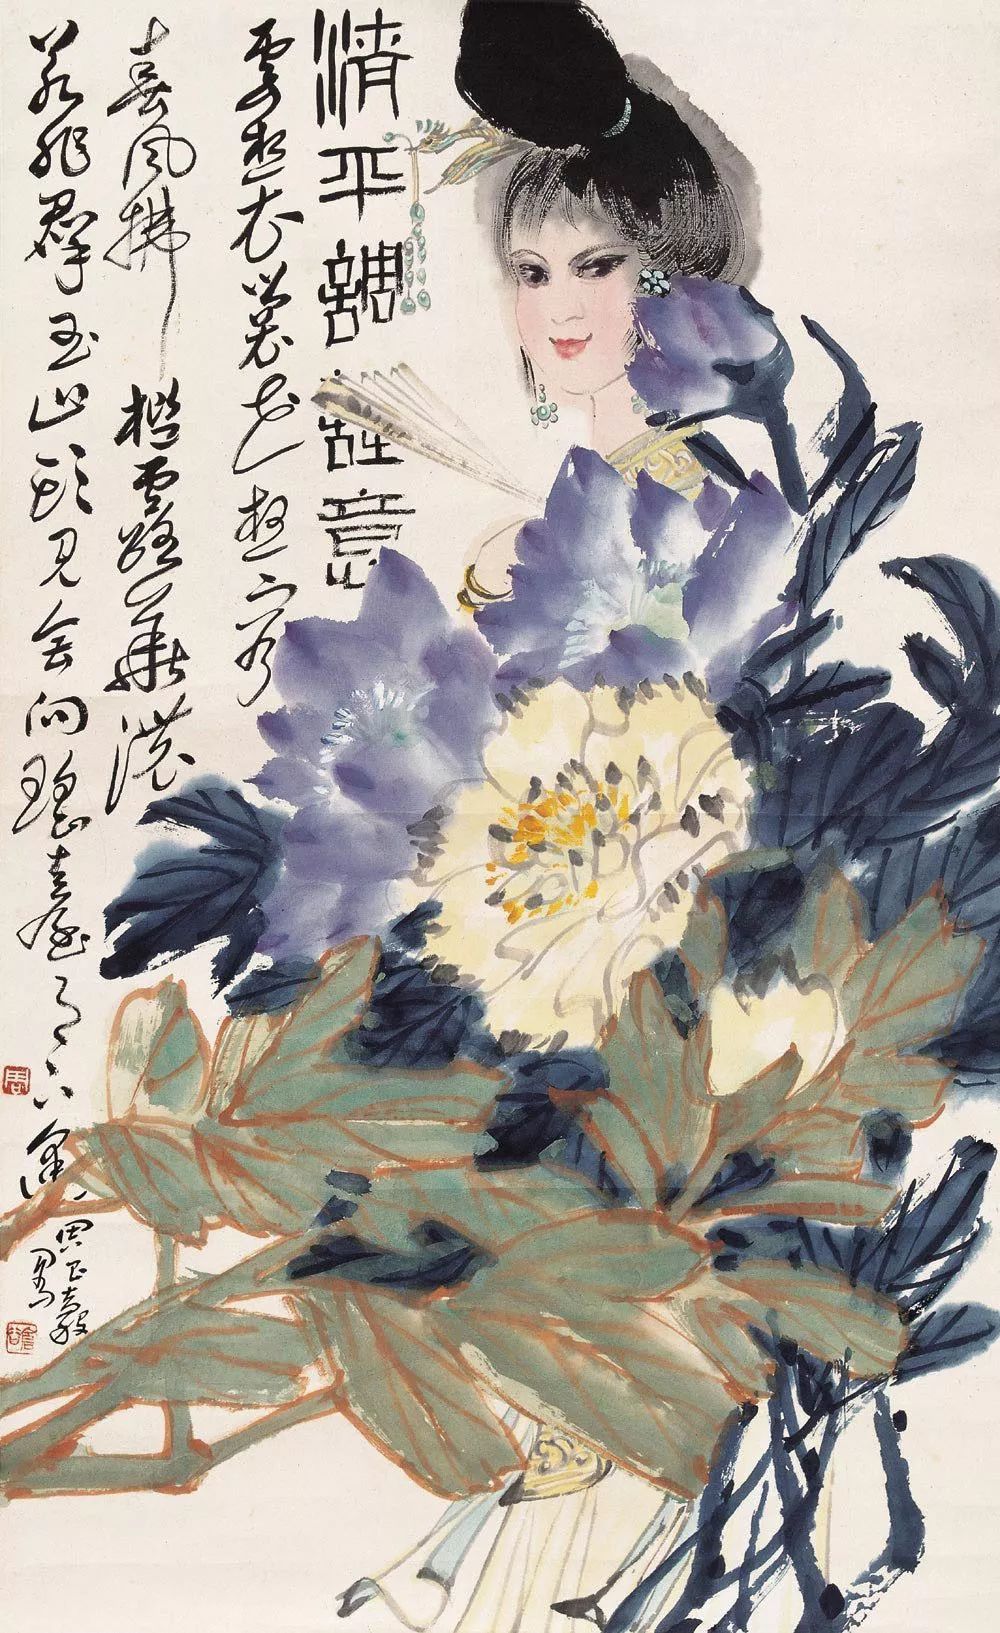 清平調詩意
雲想衣裳花想容
春風拂檻露華濃
若非群玉山頭見會向瑤臺月下逢
周昌穀
寫
周
昌谷